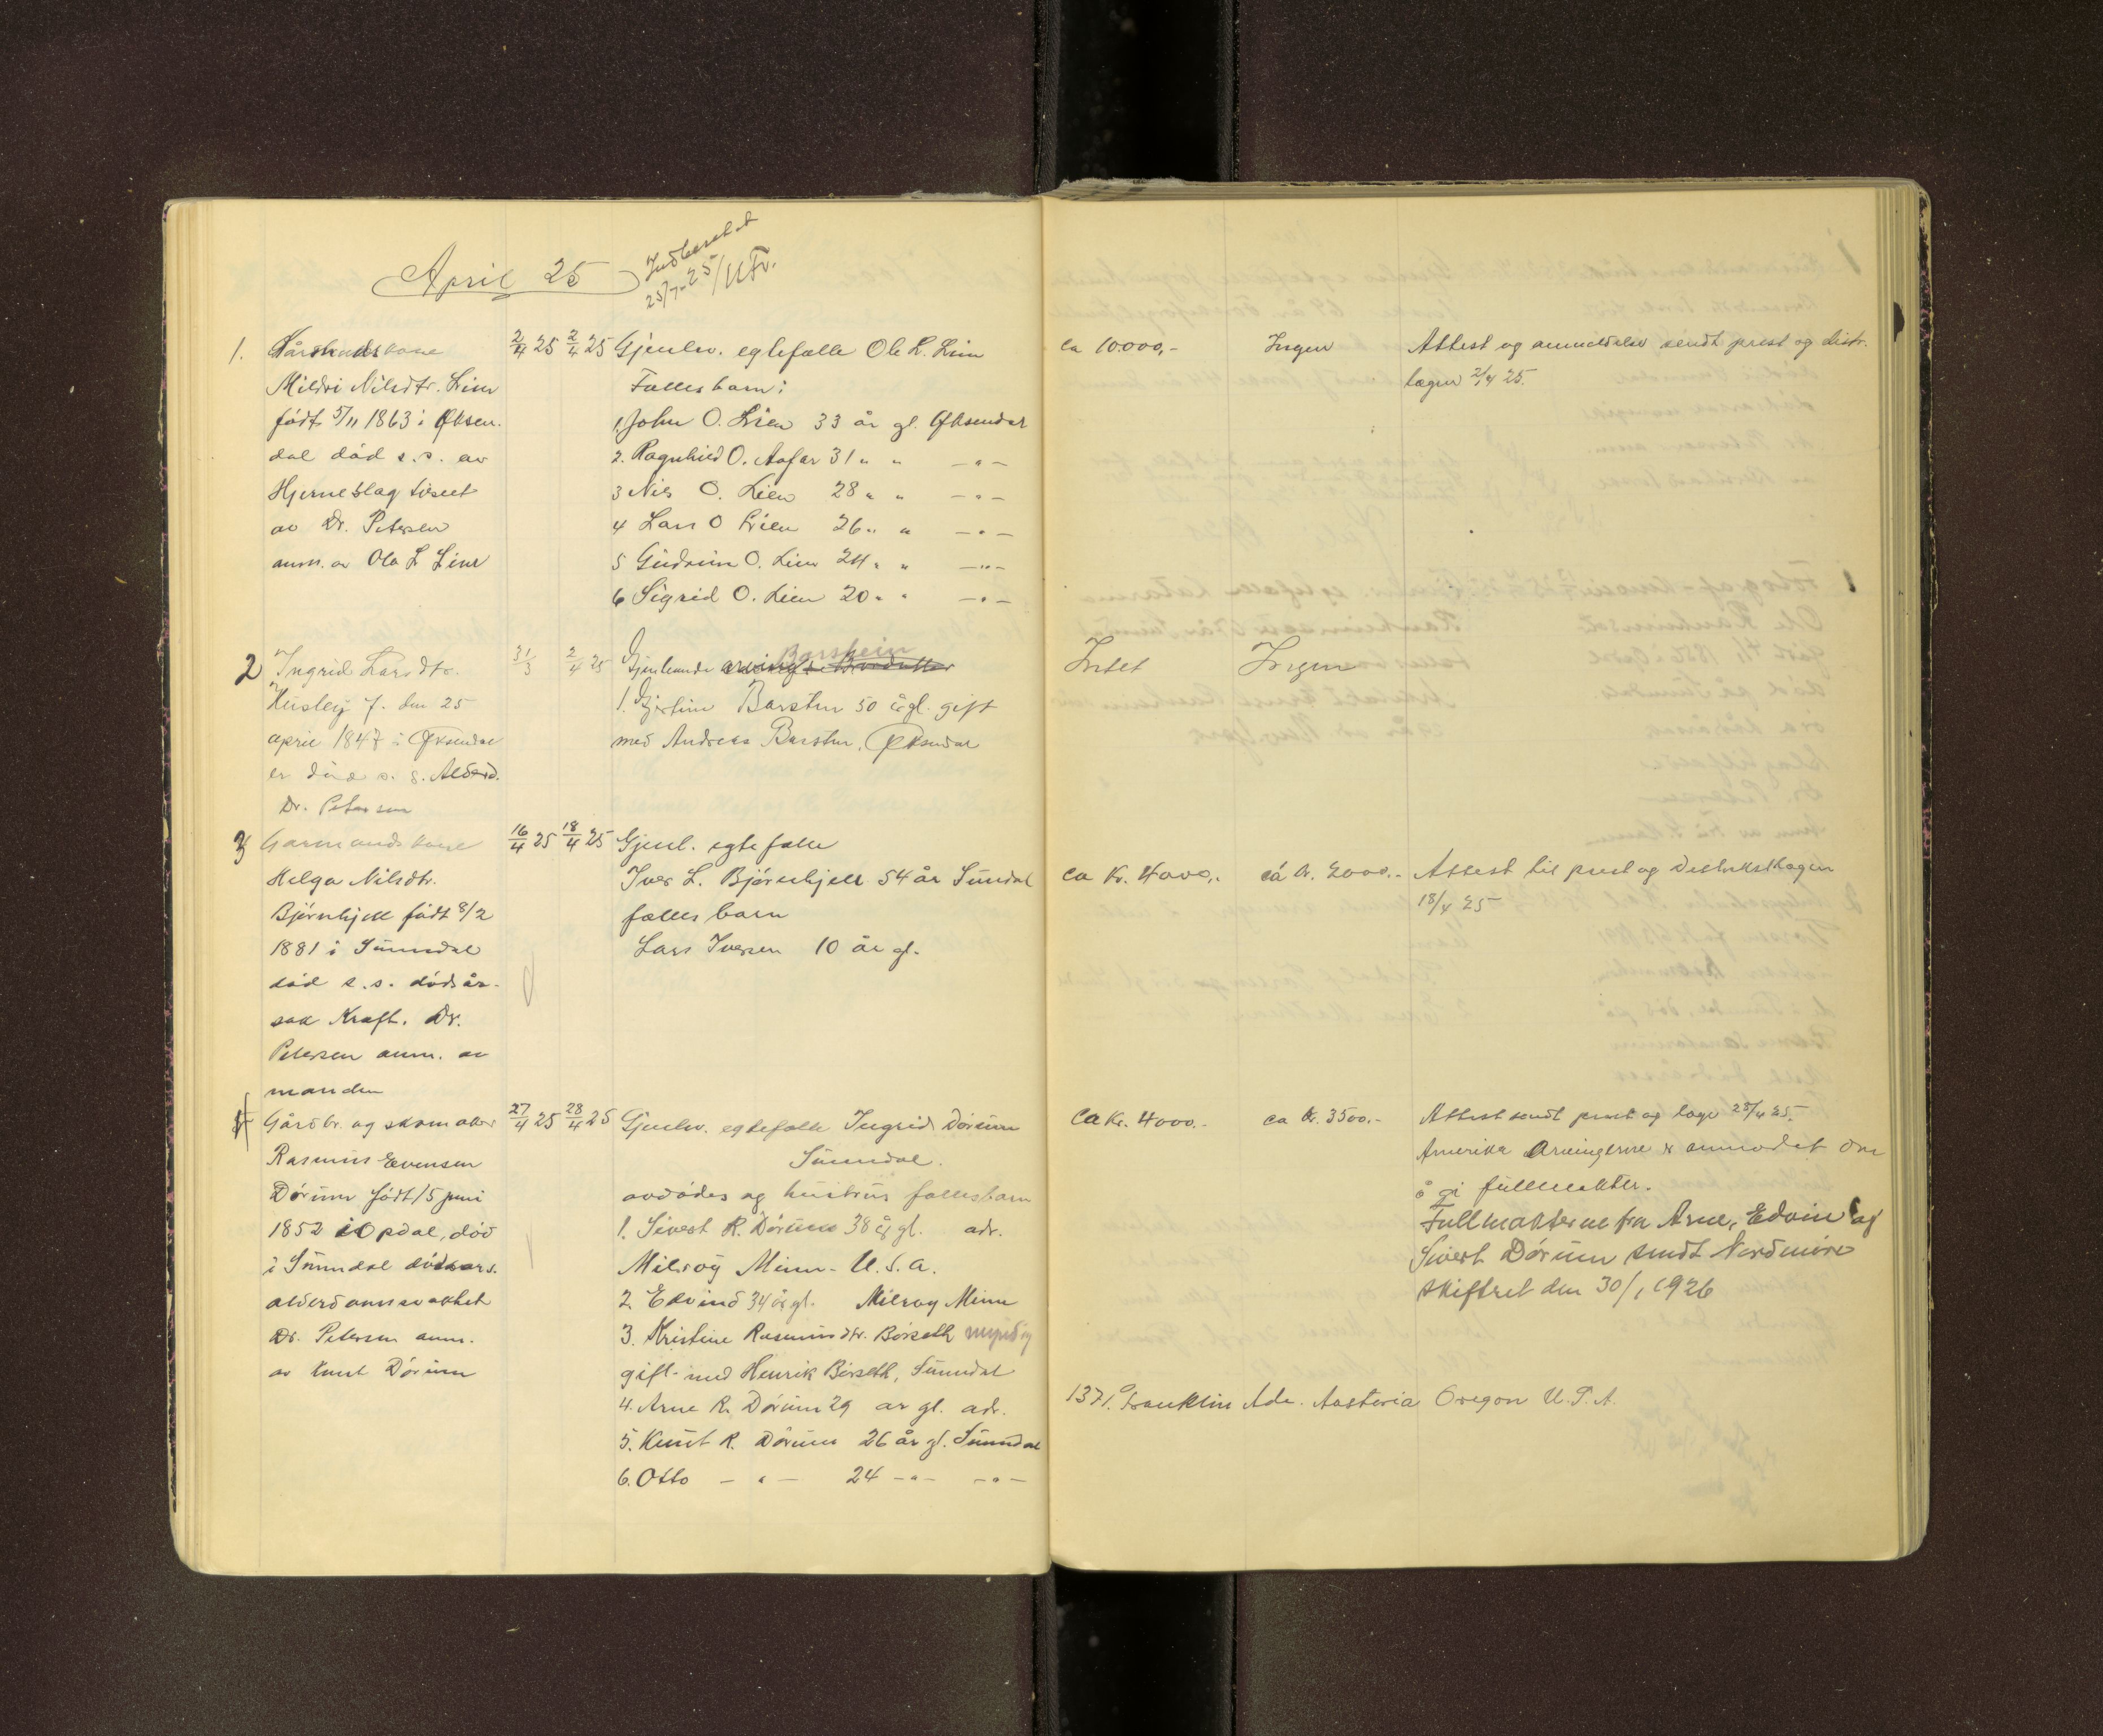 April 25
Indberettet
25/7-25/
1. Gårmandskone 2/4 25 2/4 25 Gjenlev. egtefælle Ole L. Lien ca 10.000,- Ingen Attest og anmeldelse sendt prest og distr.
Mildri Nilsdtr. Lien Fællesbarn: lægen 2/4 25.
født 5/11 1863 i Øksen- 1. John O. Lien 33 år gl. Øksendal
dal død s.s. av 2. Ragnhild O. 31 " " - " -
Hjerneslag tilseet 3 Nils O. Lien 28 " " - " -
av Dr. Petersen 4 Lars O Lien 26 " " - " -
anm. av Ola L Lien 5 Gudrun O. Lien 24 " " - " -
6 Sigrid O. Lien 20 " " - " -
Barshein
2 Ingrid Larsdtr. 31/3 2/4 25 Gjenlevende Intet Ingen
Husby f. den 25 1. 50 år gl. gift
april 1847 i Øksendal med Andreas Øksendal
er død s. s.
Dr. Petersen
3 Garmandskone 16/4 25 18/4 25 Gjenl. egtefælle
Helga Nilsdtr. Iver L. Bjørnhjell 54 år Sunndal ca Kr. 4000,- ca kr. 2000.- Attest til prest og Distriktslægen
Bjørnhjell født 8/2 fælles barn 18/4 25
1881 i Sunndal Lars Iversen 10 år gl.
død s.s. dødsår-
sak Kræft. Dr.
Petersen anm. av
manden
4 Gårdbr. og skomaker 27/4 25 28/4 25 Gjenlev. egtefælle Ingrid Dørum ca Kr. 4000.- ca kr. 3500.- Attest sendt prest og læge 28/4 25.
Rasmus Evensen Sunndal. Amerika Arvingerne er anmodet om
Dørum født 15 juni avdødes og hustrus fællesbarn å gi fullmakter.
1852 i Opdal, død 1. Sivert R. Dørum 38 år gl. adr. Fullmakterne fra Arne, Edvin og
i Sunndal dødsårs. Milroy Minn- U.S.A. Sivert Dørum sendt Nordmøre
alderdomssvakhet 2. Edvind 34 år gl. Milroy Minn skifteret den 30/1 1926
Dr. Petersen anm. 3. Kristine Rasmusdtr. Børseth myndig
av Knut Dørum gift med Henrik Børseth, Sunndal
4. Arne R. Dørum 29 år gl. adr. 1371. Franklin Ade. Aastoria Oregon U.S.A.
5. Knut R. Dørum 26 år gl. Sunndal
6. Otto - " - 24 - " - - " -